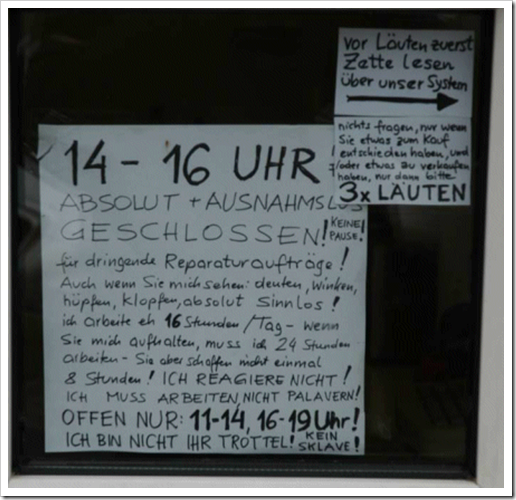 vor Läuten zuerst
Zette lesen
über unser System
nichts fragen, nur wenn
Sie etwas zum Kauf
entschieden haben, und
/oder etwas zu verkaufen
haben, nur dann bitte
3x LÄUTEN
14 - 16 UHR
ABSOLUT + AUSNAHMSLOS
GESCHLOSSEN! KEINE PAUSE!
für dringende Reparaturaufträge!
Auch wenn Sie mich sehen: deuten, winken,
hüpfen, klopfen, absolut sinnlos!
ich arbeite eh 16 Stunden/Tag - wenn
Sie mich aufhalten, muss ich 24 Stunden
arbeiten - Sie aber schaffen nicht einmal
8 Stunden! ICH REAGIERE NICHT!
ICH MUSS ARBEITEN, NICHT PALAVERN!
OFFEN NUR: 11-14, 16-19 Uhr!
ICH BIN NICHT IHR TROTTEL! KEIN SKLAVE!